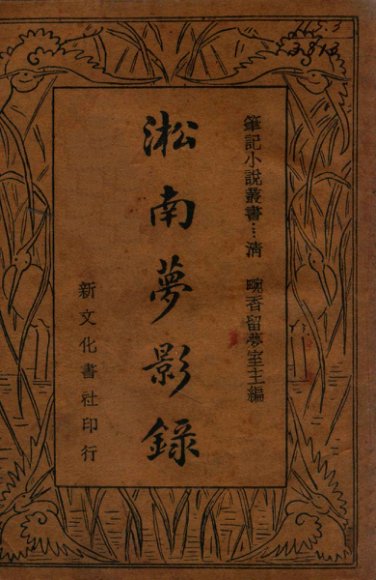 筆記小說叢書…清 畹香留夢室主編
淞南夢影錄
新文化書社印行